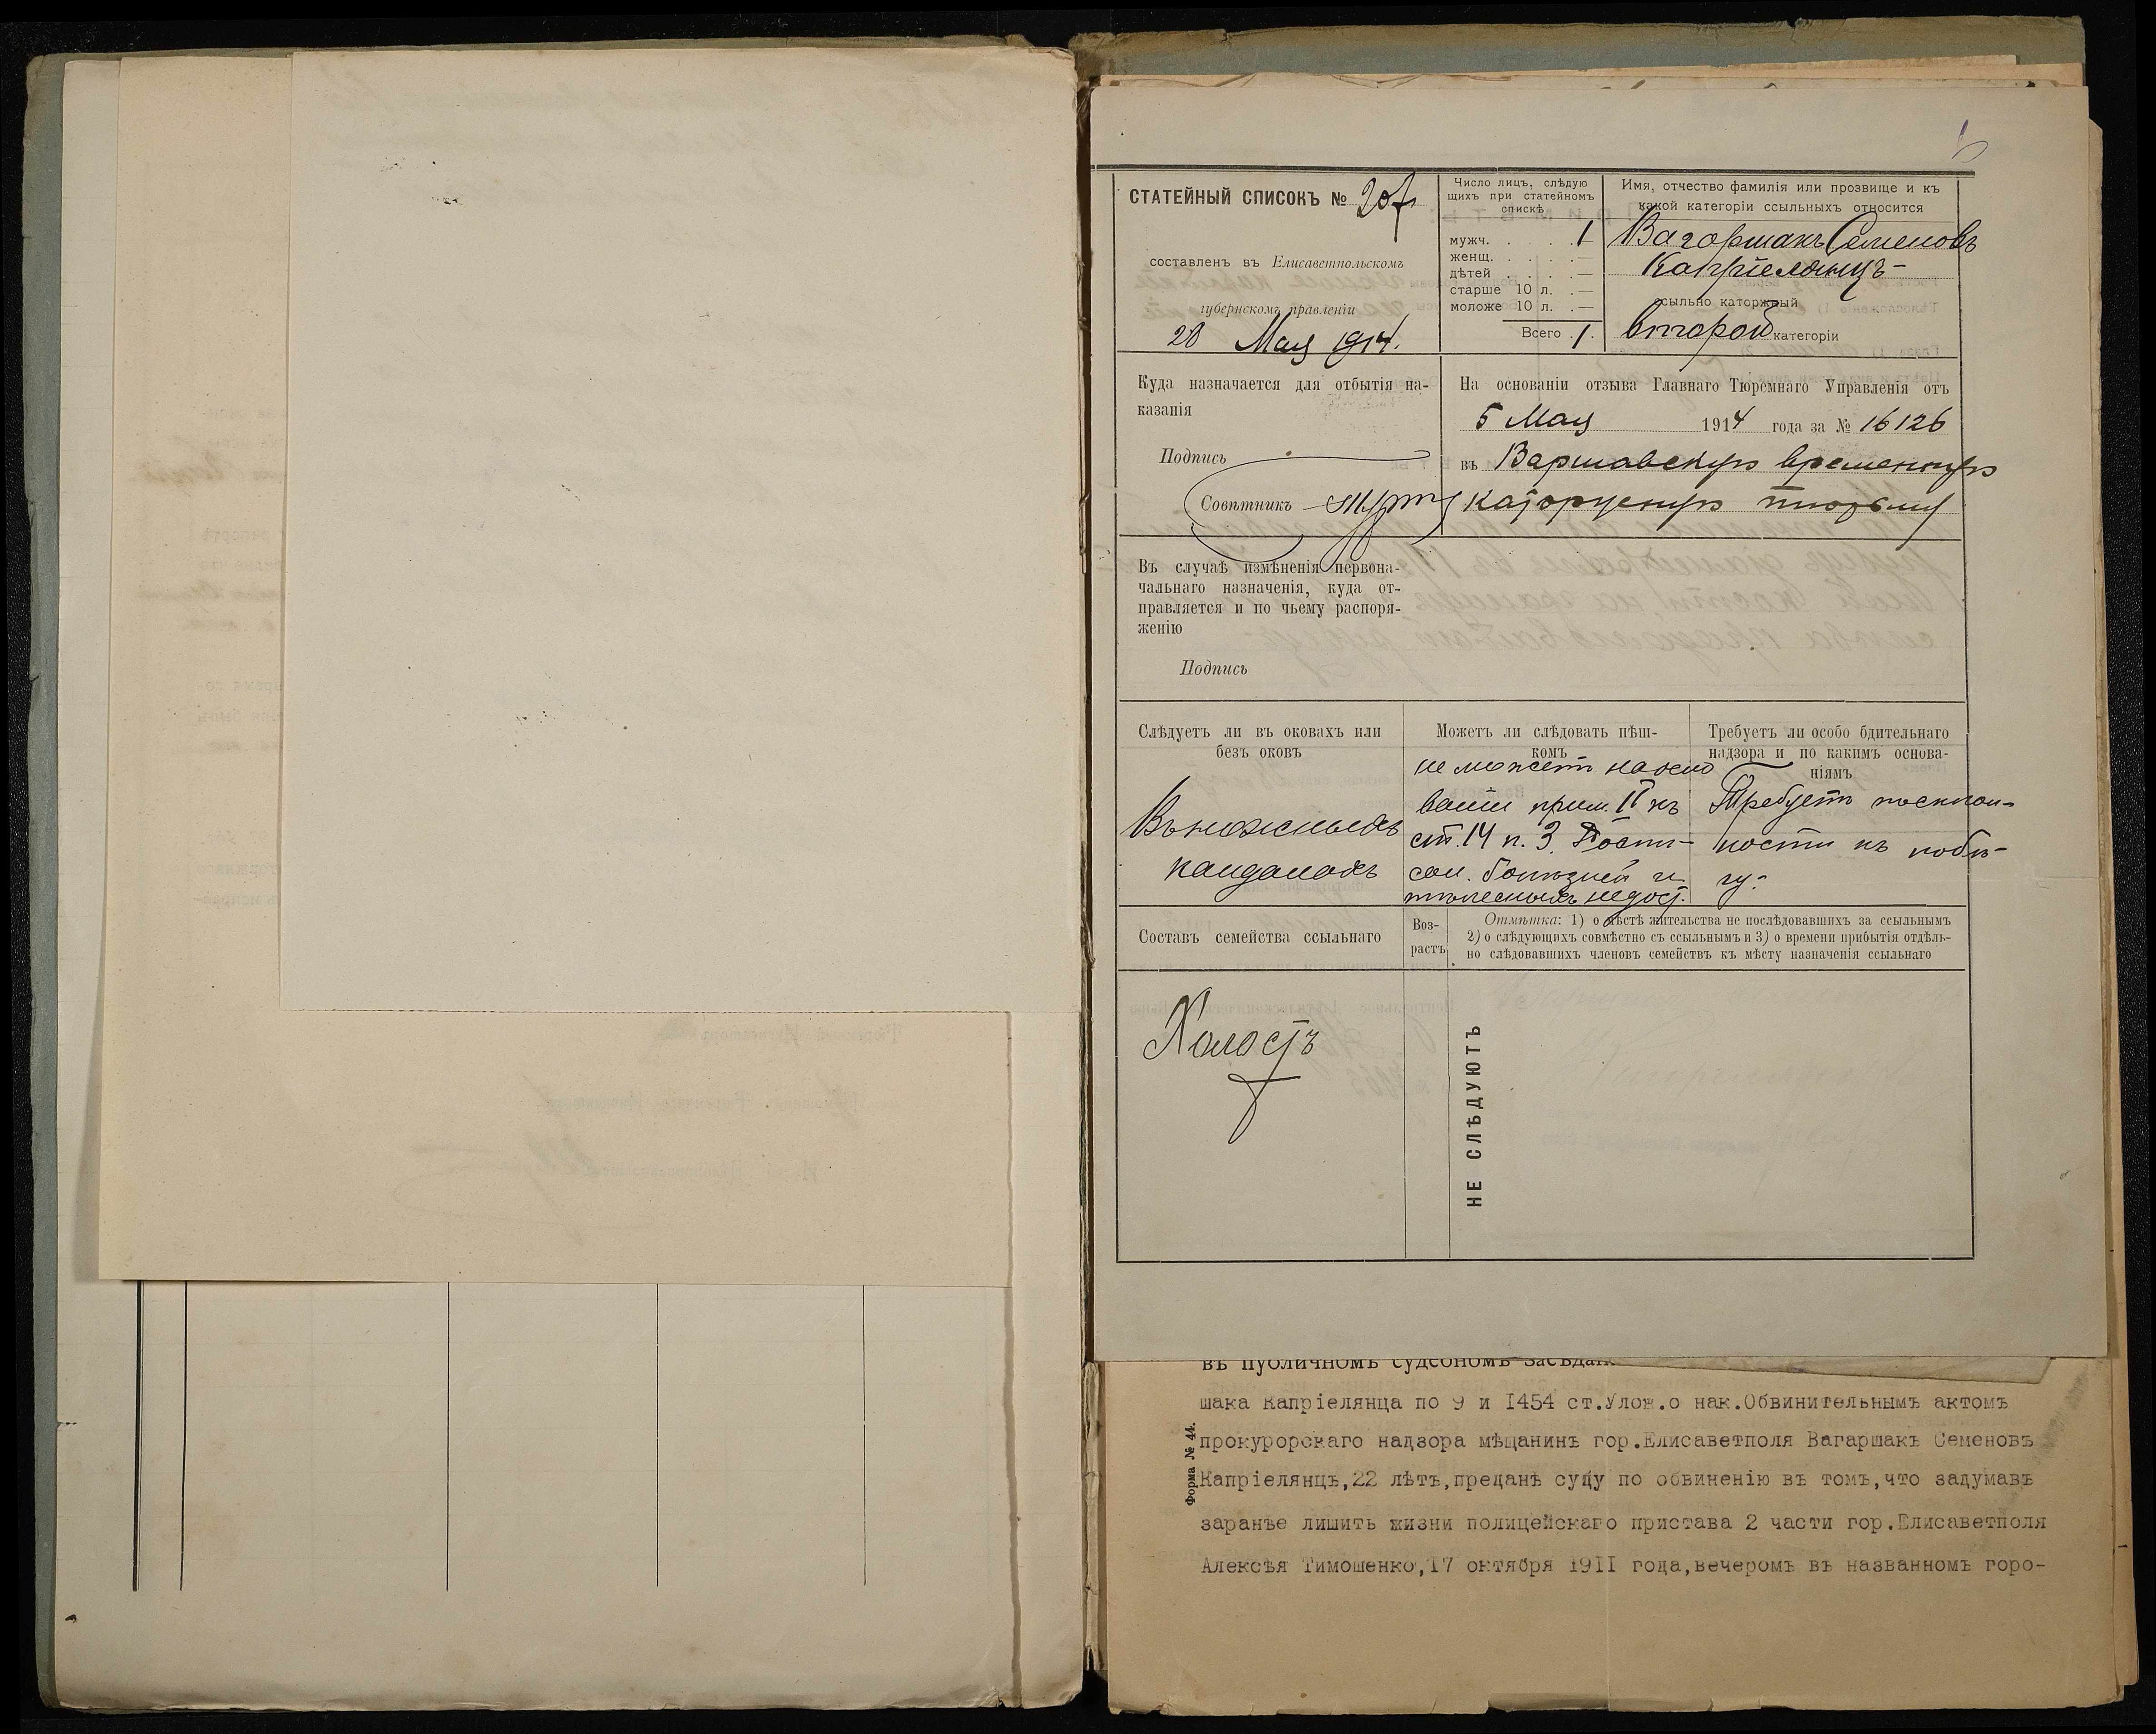 СТАТЕЙНЫЙ СПИСОКЪ № 207
составленъ въ Елисаветпольскомъ
губернскомъ правленіи
28 Мая 1914.
Число лицъ, слѣдую
щихъ при статейномъ
спискѣ
мужч. . . . 1
женщ. . . . . —
дѣтей . . . . —
старше 10 л. . —
моложе 10 л. . —
Всего . 1.
Имя, отчество фамилія или прозвище и къ
какой категоріи ссыльныхъ относится
Вагаршакъ Семеновъ
Капріелянцъ
ссыльно каторжный
второй категоріи
Куда назначается для отбытія на-
казанія
Подпись
Совѣтникъ
На основаніи отзыва Главнаго Тюремнаго Управленія отъ
5 Мая 1914 года за № 16126
въ Варшавскую временную
каторжную тюрьму
Въ случаѣ измѣненія первона-
чальнаго назначенія, куда от-
правляется и по чьему распоря-
женію
Подпись
Слѣдуетъ ли въ оковахъ или
безъ оковъ
Въ ножныхъ
кандалахъ
Можетъ ли слѣдовать пѣш-
комъ
не можетъ на осно
ваніи прим. II къ
ст. 14 п. 3.
сан. болѣзней и
тѣлесныхъ недост.
Требуетъ ли особо бдительнаго
надзора и по какимъ основа-
ніямъ
Требуетъ по склон-
ности къ побѣ-
гу.
Составъ семейства ссыльнаго
Воз-
растъ
Отмѣтка: 1) о мѣстѣ жительства не послѣдовавшихъ за ссыльнымъ
2) о слѣдующихъ совмѣстно съ ссыльнымъ и 3) о времени прибытія отдѣль-
но слѣдовавшихъ членовъ семействъ къ мѣсту назначенія ссыльнаго
Холостъ
НЕ СЛѢДУЮТЪ
въ публичномъ судебномъ
шака Капріелянца по 9 и I454 ст.Улож.о нак.Обвинительнымъ актомъ
прокурорскаго надзора мѣщанинъ гор.Елисаветполя Вагаршакъ Семеновъ
Капріелянцъ,22 лѣтъ,преданѣ суду по обвиненію въ томъ,что задумавъ
заранѣе лишить жизни полицейскаго пристава 2 части гор.Елисаветполя
Алексѣя Тимошенко,I7 октября I9II года,вечеромъ въ названномъ горо-
Форма № 44.